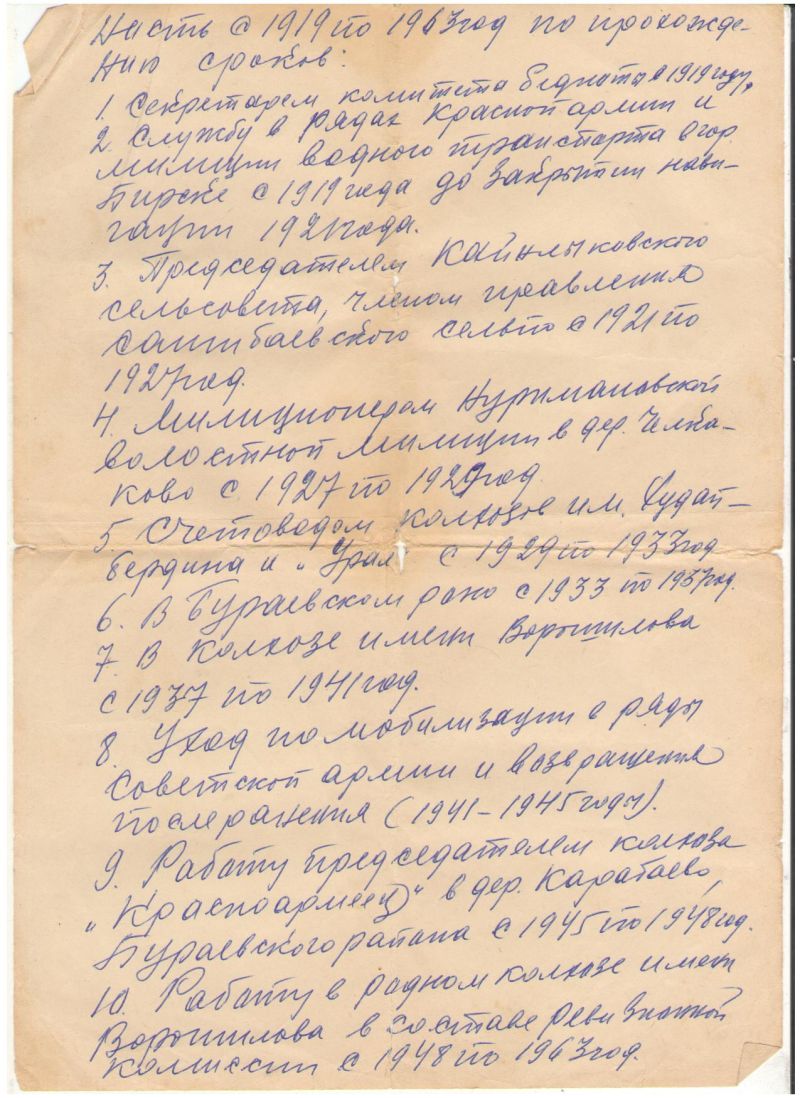 ность с 1919 по 1963 год по прохожде-
нию сроков:
1. Секретарем комитета бедноты в 1919 году,
2. Службу в рядах Красной армии и
милиции водного транспорта в гор.
Бирске с 1919 года до закрытии нави-
гации 1921 года.
3. Председателем Кайнлыковского
сельсовета, членом правления
саитбаевского сельпо с 1921 по
1927 год.
4. Милиционером Нуримановской
волостной милиции в дер. Челка-
ково с 1927 по 1929 год.
5. Счетоводом колхозов им. Худай-
бердина и „Урал“ с 1929 по 1933 год
6. В Бураевском роно с 1933 по 1937 год.
7. В колхозе имени Ворошилова
с 1937 по 1941 год.
8. Уход по мобилизации в ряды
Советской армии и возвращения
после ранения (1941-1945 годы).
9. Работу председателем колхоза
„Красноармеец“ в дер. Каратаево,
Бураевского района с 1945 по 1948 год.
10. Работу в родном колхозе имени
Ворошилова в составе ревизионной
комиссии с 1948 по 1963 год.